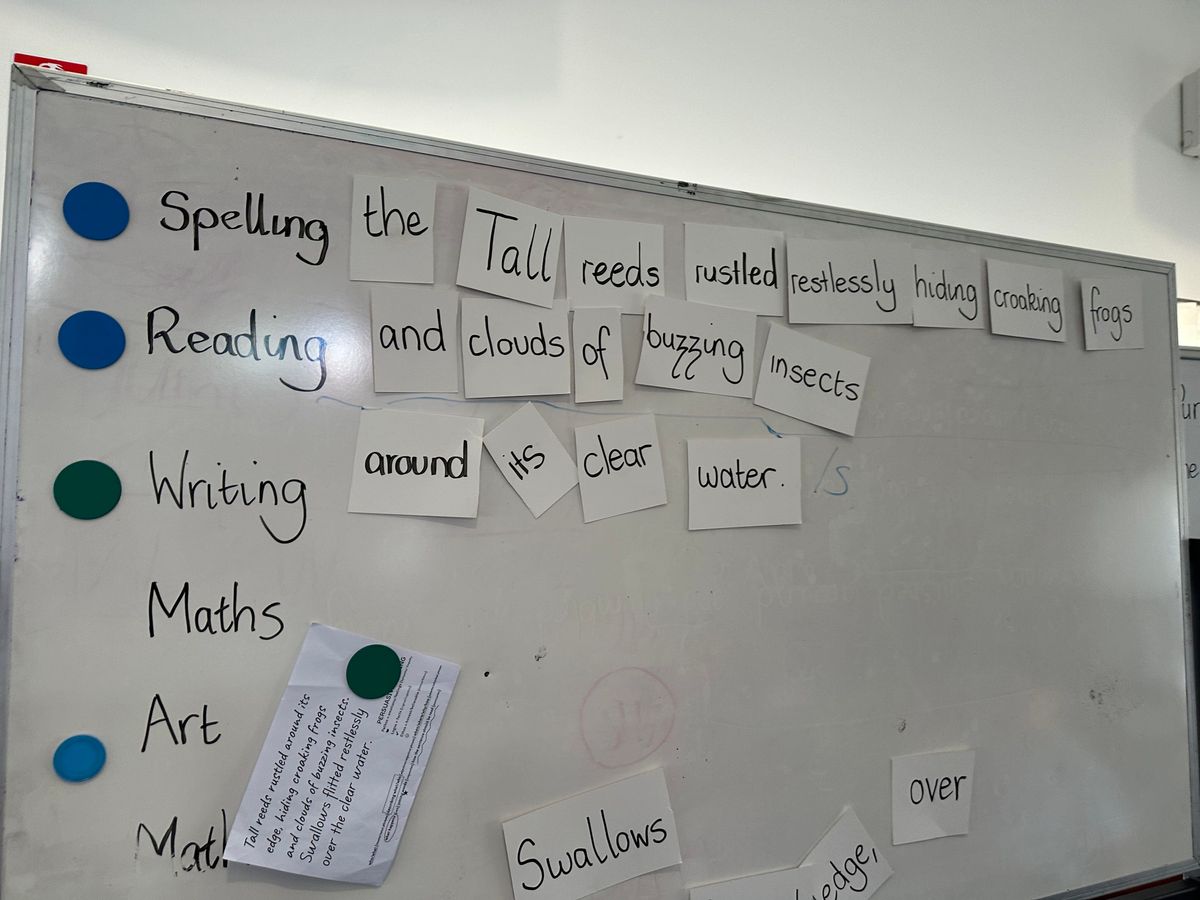 Spelling the Tall reeds rustled restlessly hiding croaking frogs
Reading and clouds of buzzing insects
Writing around its clear water. /s
Maths
Art
Tall reeds rustled around its
edge, hiding croaking frogs
and clouds of buzzing insects.
Swallows flitted restlessly
over the clear water.
Swallows edge, over